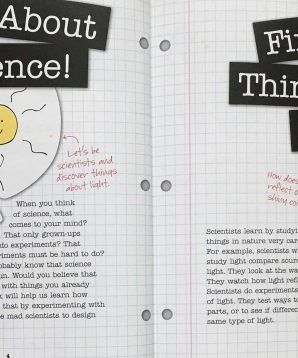 About
ence!
Let's be
scientists and
discover things
about light.
When you think
of science, what
comes to your mind?
That only grown-ups
do experiments? That
periments must be hard to do?
obably know that science
un. Would you believe that
with things you already
k will help us learn how
that by experimenting with
e mad scientists to design
4
Fi
Thin
How does
reflect o
shiny co
Scientists learn by studyi
things in nature very car
For example, scientists w
study light compare sour
light. They look at the wa
They watch how light refl
Scientists do experiments
of light. They test ways t
parts, or to see if differen
same type of light.